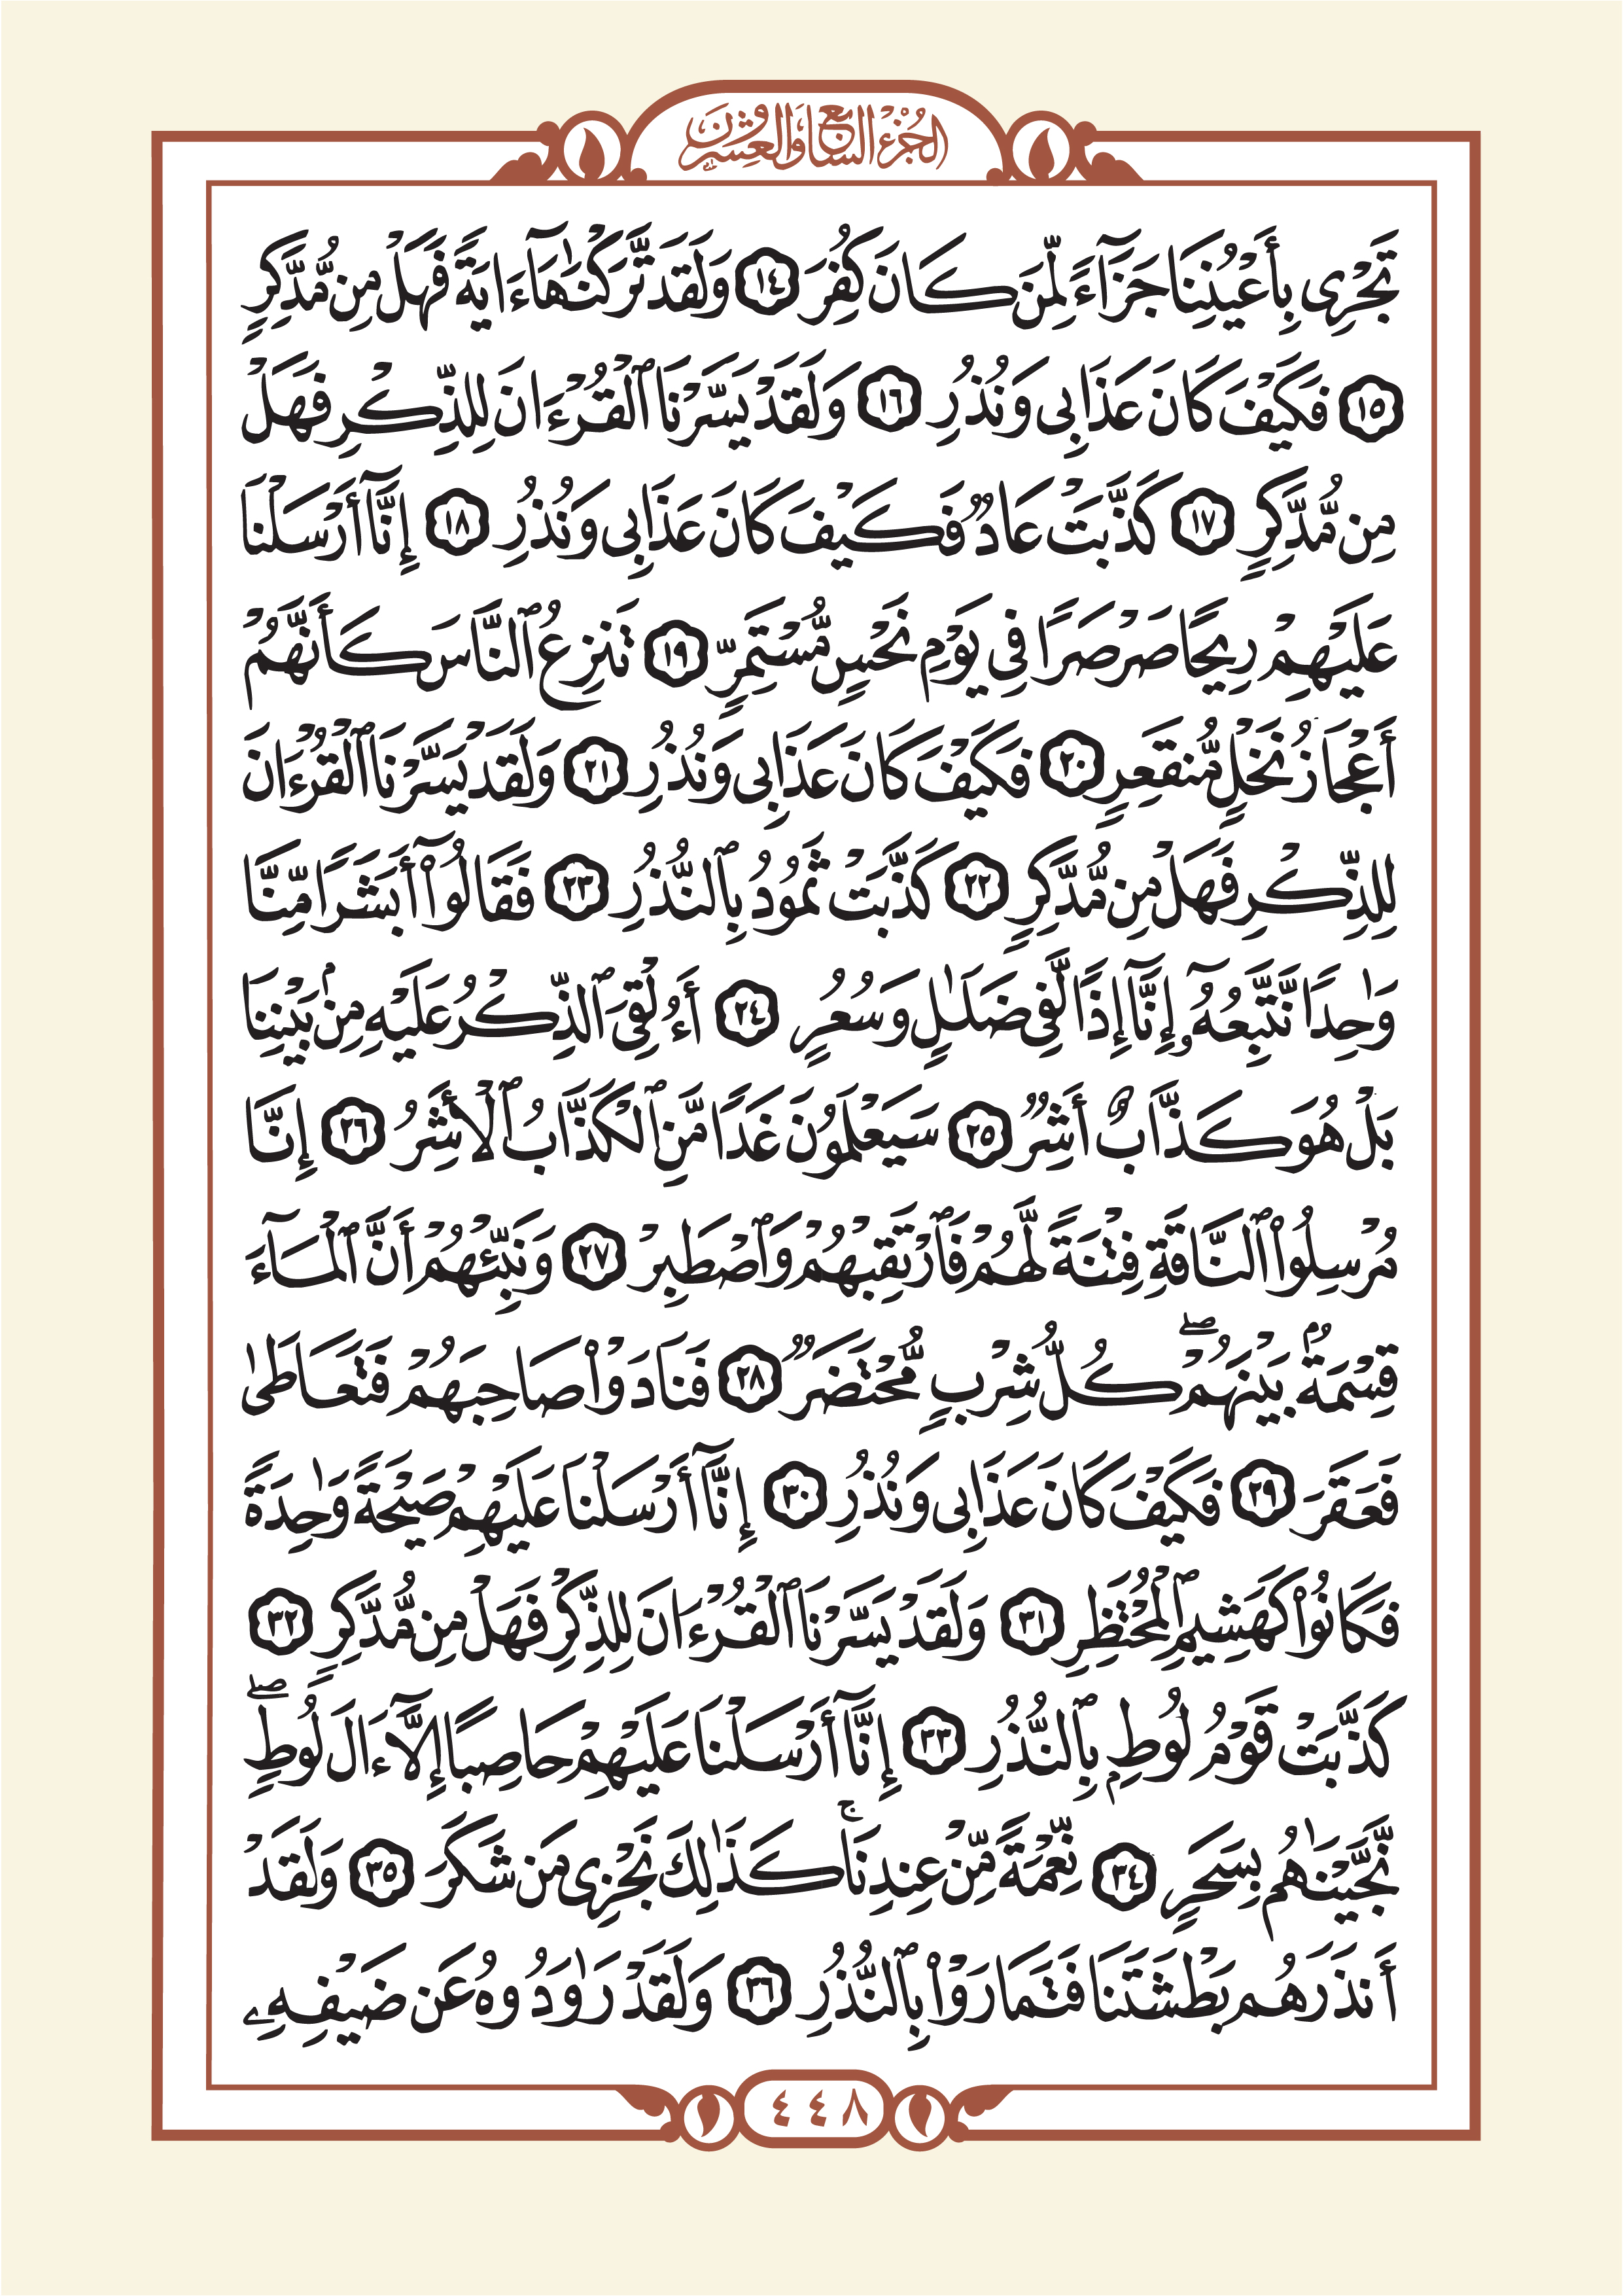 الجزء السابع والعشرون
تَجْرِى بِأَعْيُنِنَا جَزَآءً لِّمَن كَانَ كُفِرَ ١٤ وَلَقَد تَّرَكْنَٰهَآ ءَايَةً فَهَلْ مِن مُّدَّكِرٍ
١٥ فَكَيْفَ كَانَ عَذَابِى وَنُذُرِ ١٦ وَلَقَدْ يَسَّرْنَا ٱلْقُرْءَانَ لِلذِّكْرِ فَهَلْ
مِن مُّدَّكِرٍ ١٧ كَذَّبَتْ عَادٌ فَكَيْفَ كَانَ عَذَابِى وَنُذُرِ ١٨ إِنَّآ أَرْسَلْنَا
عَلَيْهِمْ رِيحًا صَرْصَرًا فِى يَوْمِ نَحْسٍ مُّسْتَمِرٍّ ١٩ تَنزِعُ ٱلنَّاسَ كَأَنَّهُمْ
أَعْجَازُ نَخْلٍ مُّنقَعِرٍ ٢٠ فَكَيْفَ كَانَ عَذَابِى وَنُذُرِ ٢١ وَلَقَدْ يَسَّرْنَا ٱلْقُرْءَانَ
لِلذِّكْرِ فَهَلْ مِن مُّدَّكِرٍ ٢٢ كَذَّبَتْ ثَمُودُ بِٱلنُّذُرِ ٢٣ فَقَالُوٓا۟ أَبَشَرًا مِّنَّا
وَٰحِدًا نَّتَّبِعُهُۥٓ إِنَّآ إِذًا لَّفِى ضَلَٰلٍ وَسُعُرٍ ٢٤ أَءُلْقِىَ ٱلذِّكْرُ عَلَيْهِ مِنۢ بَيْنِنَا
بَلْ هُوَ كَذَّابٌ أَشِرٌ ٢٥ سَيَعْلَمُونَ غَدًا مَّنِ ٱلْكَذَّابُ ٱلْأَشِرُ ٢٦ إِنَّا
مُرْسِلُوا۟ ٱلنَّاقَةِ فِتْنَةً لَّهُمْ فَٱرْتَقِبْهُمْ وَٱصْطَبِرْ ٢٧ وَنَبِّئْهُمْ أَنَّ ٱلْمَآءَ
قِسْمَةٌۢ بَيْنَهُمْ ۖ كُلُّ شِرْبٍ مُّحْتَضَرٌ ٢٨ فَنَادَوْا۟ صَاحِبَهُمْ فَتَعَاطَىٰ
فَعَقَرَ ٢٩ فَكَيْفَ كَانَ عَذَابِى وَنُذُرِ ٣٠ إِنَّآ أَرْسَلْنَا عَلَيْهِمْ صَيْحَةً وَٰحِدَةً
فَكَانُوا۟ كَهَشِيمِ ٱلْمُحْتَظِرِ ٣١ وَلَقَدْ يَسَّرْنَا ٱلْقُرْءَانَ لِلذِّكْرِ فَهَلْ مِن مُّدَّكِرٍ ٣٢
كَذَّبَتْ قَوْمُ لُوطٍۭ بِٱلنُّذُرِ ٣٣ إِنَّآ أَرْسَلْنَا عَلَيْهِمْ حَاصِبًا إِلَّآ ءَالَ لُوطٍ ۖ
نَّجَّيْنَٰهُم بِسَحَرٍ ٣٤ نِّعْمَةً مِّنْ عِندِنَا ۚ كَذَٰلِكَ نَجْزِى مَن شَكَرَ ٣٥ وَلَقَدْ
أَنذَرَهُم بَطْشَتَنَا فَتَمَارَوْا۟ بِٱلنُّذُرِ ٣٦ وَلَقَدْ رَٰوَدُوهُ عَن ضَيْفِهِۦ
٤٤٨